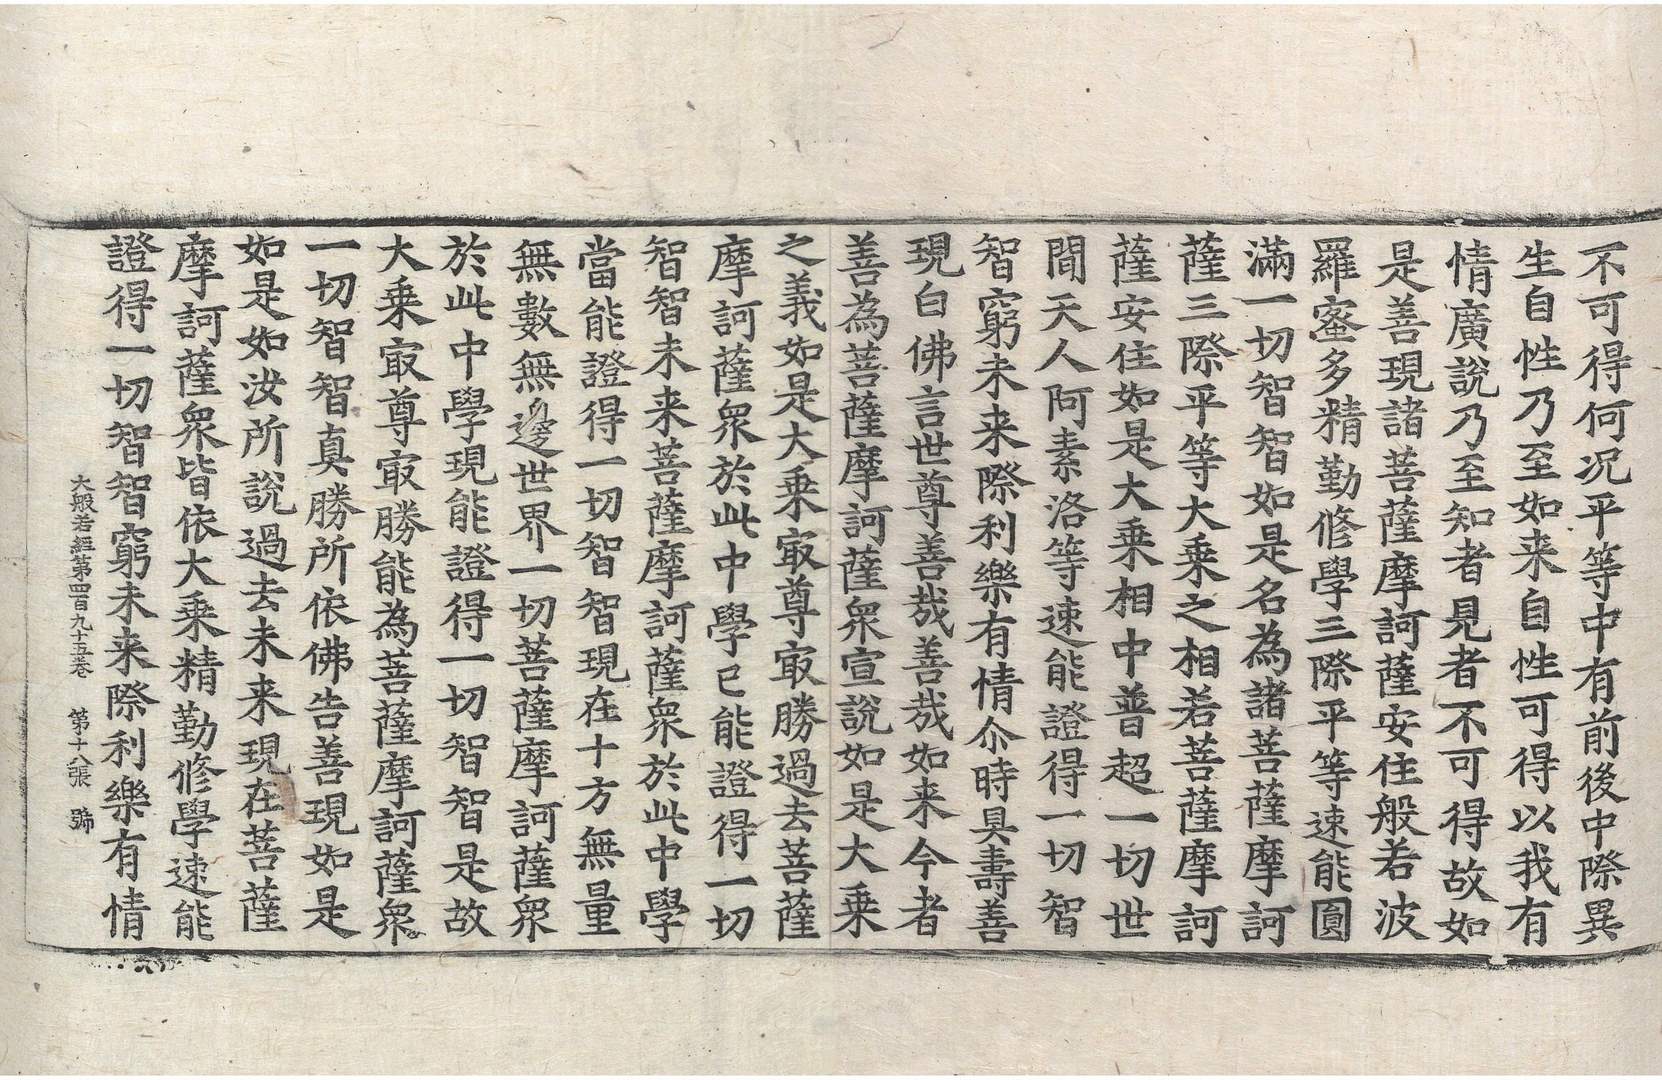 不可得何况平等中有前後中際異
生自性乃至如来自性可得以我有
情廣說乃至知者見者不可得故如
是善現諸菩薩摩訶薩安住般若波
羅蜜多精勤修學三際平等速能圓
滿一切智智如是名為諸菩薩摩訶
薩三際平等大乗之相若菩薩摩訶
薩安住如是大乗相中普超一切世
間天人阿素洛等速能證得一切智
智窮未来際利樂有情尒時具壽善
現白佛言世尊善哉善哉如来今者
善為菩薩摩訶薩衆宣說如是大乗
之義如是大乗㝡尊㝡勝過去菩薩
摩訶薩衆於此中學已能證得一切
智智未来菩薩摩訶薩衆於此中學
當能證得一切智智現在十方無量
無數無邊世界一切菩薩摩訶薩衆
於此中學現能證得一切智智是故
大乗㝡尊㝡勝能為菩薩摩訶薩衆
一切智智真勝所依佛告善現如是
如是如汝所說過去未来現在菩薩
摩訶薩衆皆依大乗精勤修學速能
證得一切智智窮未来際利樂有情
大般若經第四百九十五卷　第十八張　號